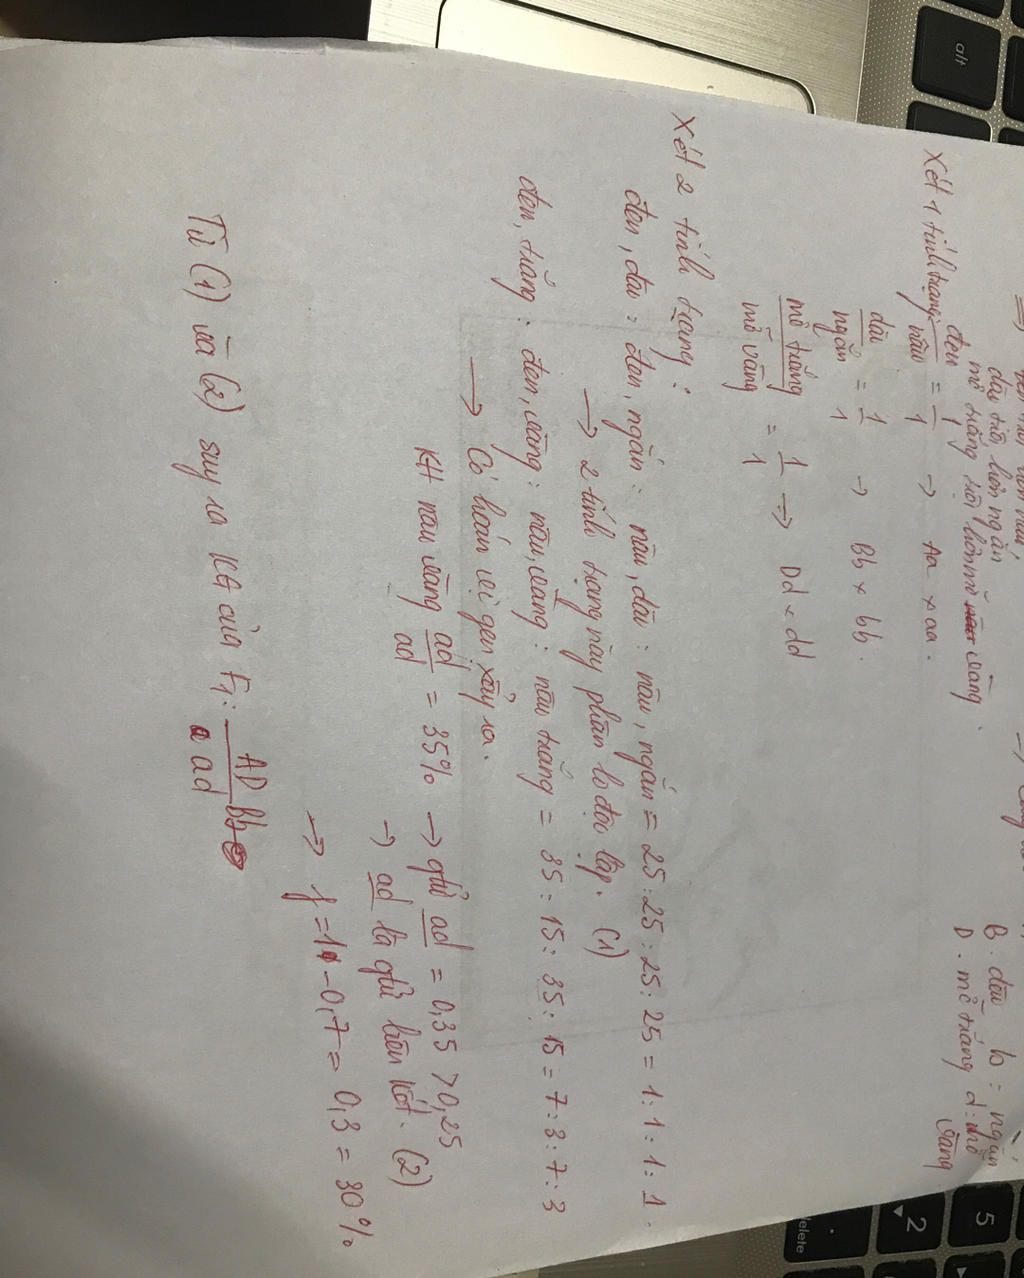 dài trội hơn ngắn
mỡ trắng trội hơn mỡ vàng.
B: dài b: ngắn
D: mỡ trắng d: mỡ vàng
Xét 1 tính trạng: đen/nâu = 1/1 → Aa × aa.
dài/ngắn = 1/1 → Bb × bb.
mỡ trắng/mỡ vàng = 1/1 → Dd × dd
Xét 2 tính trạng:
đen, dài : đen, ngắn : nâu, dài : nâu, ngắn = 25 : 25 : 25 : 25 = 1 : 1 : 1 : 1.
→ 2 tính trạng này phân li độc lập. (1)
đen, trắng : đen, vàng : nâu, vàng : nâu trắng = 35 : 15 : 35 : 15 = 7 : 3 : 7 : 3
→ Có hoán vị gen xảy ra.
KH nâu vàng ad/ad = 35% → gtử ad = 0,35 > 0,25
→ ad là gtử liên kết. (2)
→ f = 1 - 0,7 = 0,3 = 30%
Từ (1) và (2) suy ra KG của F1: AD/ad Bb